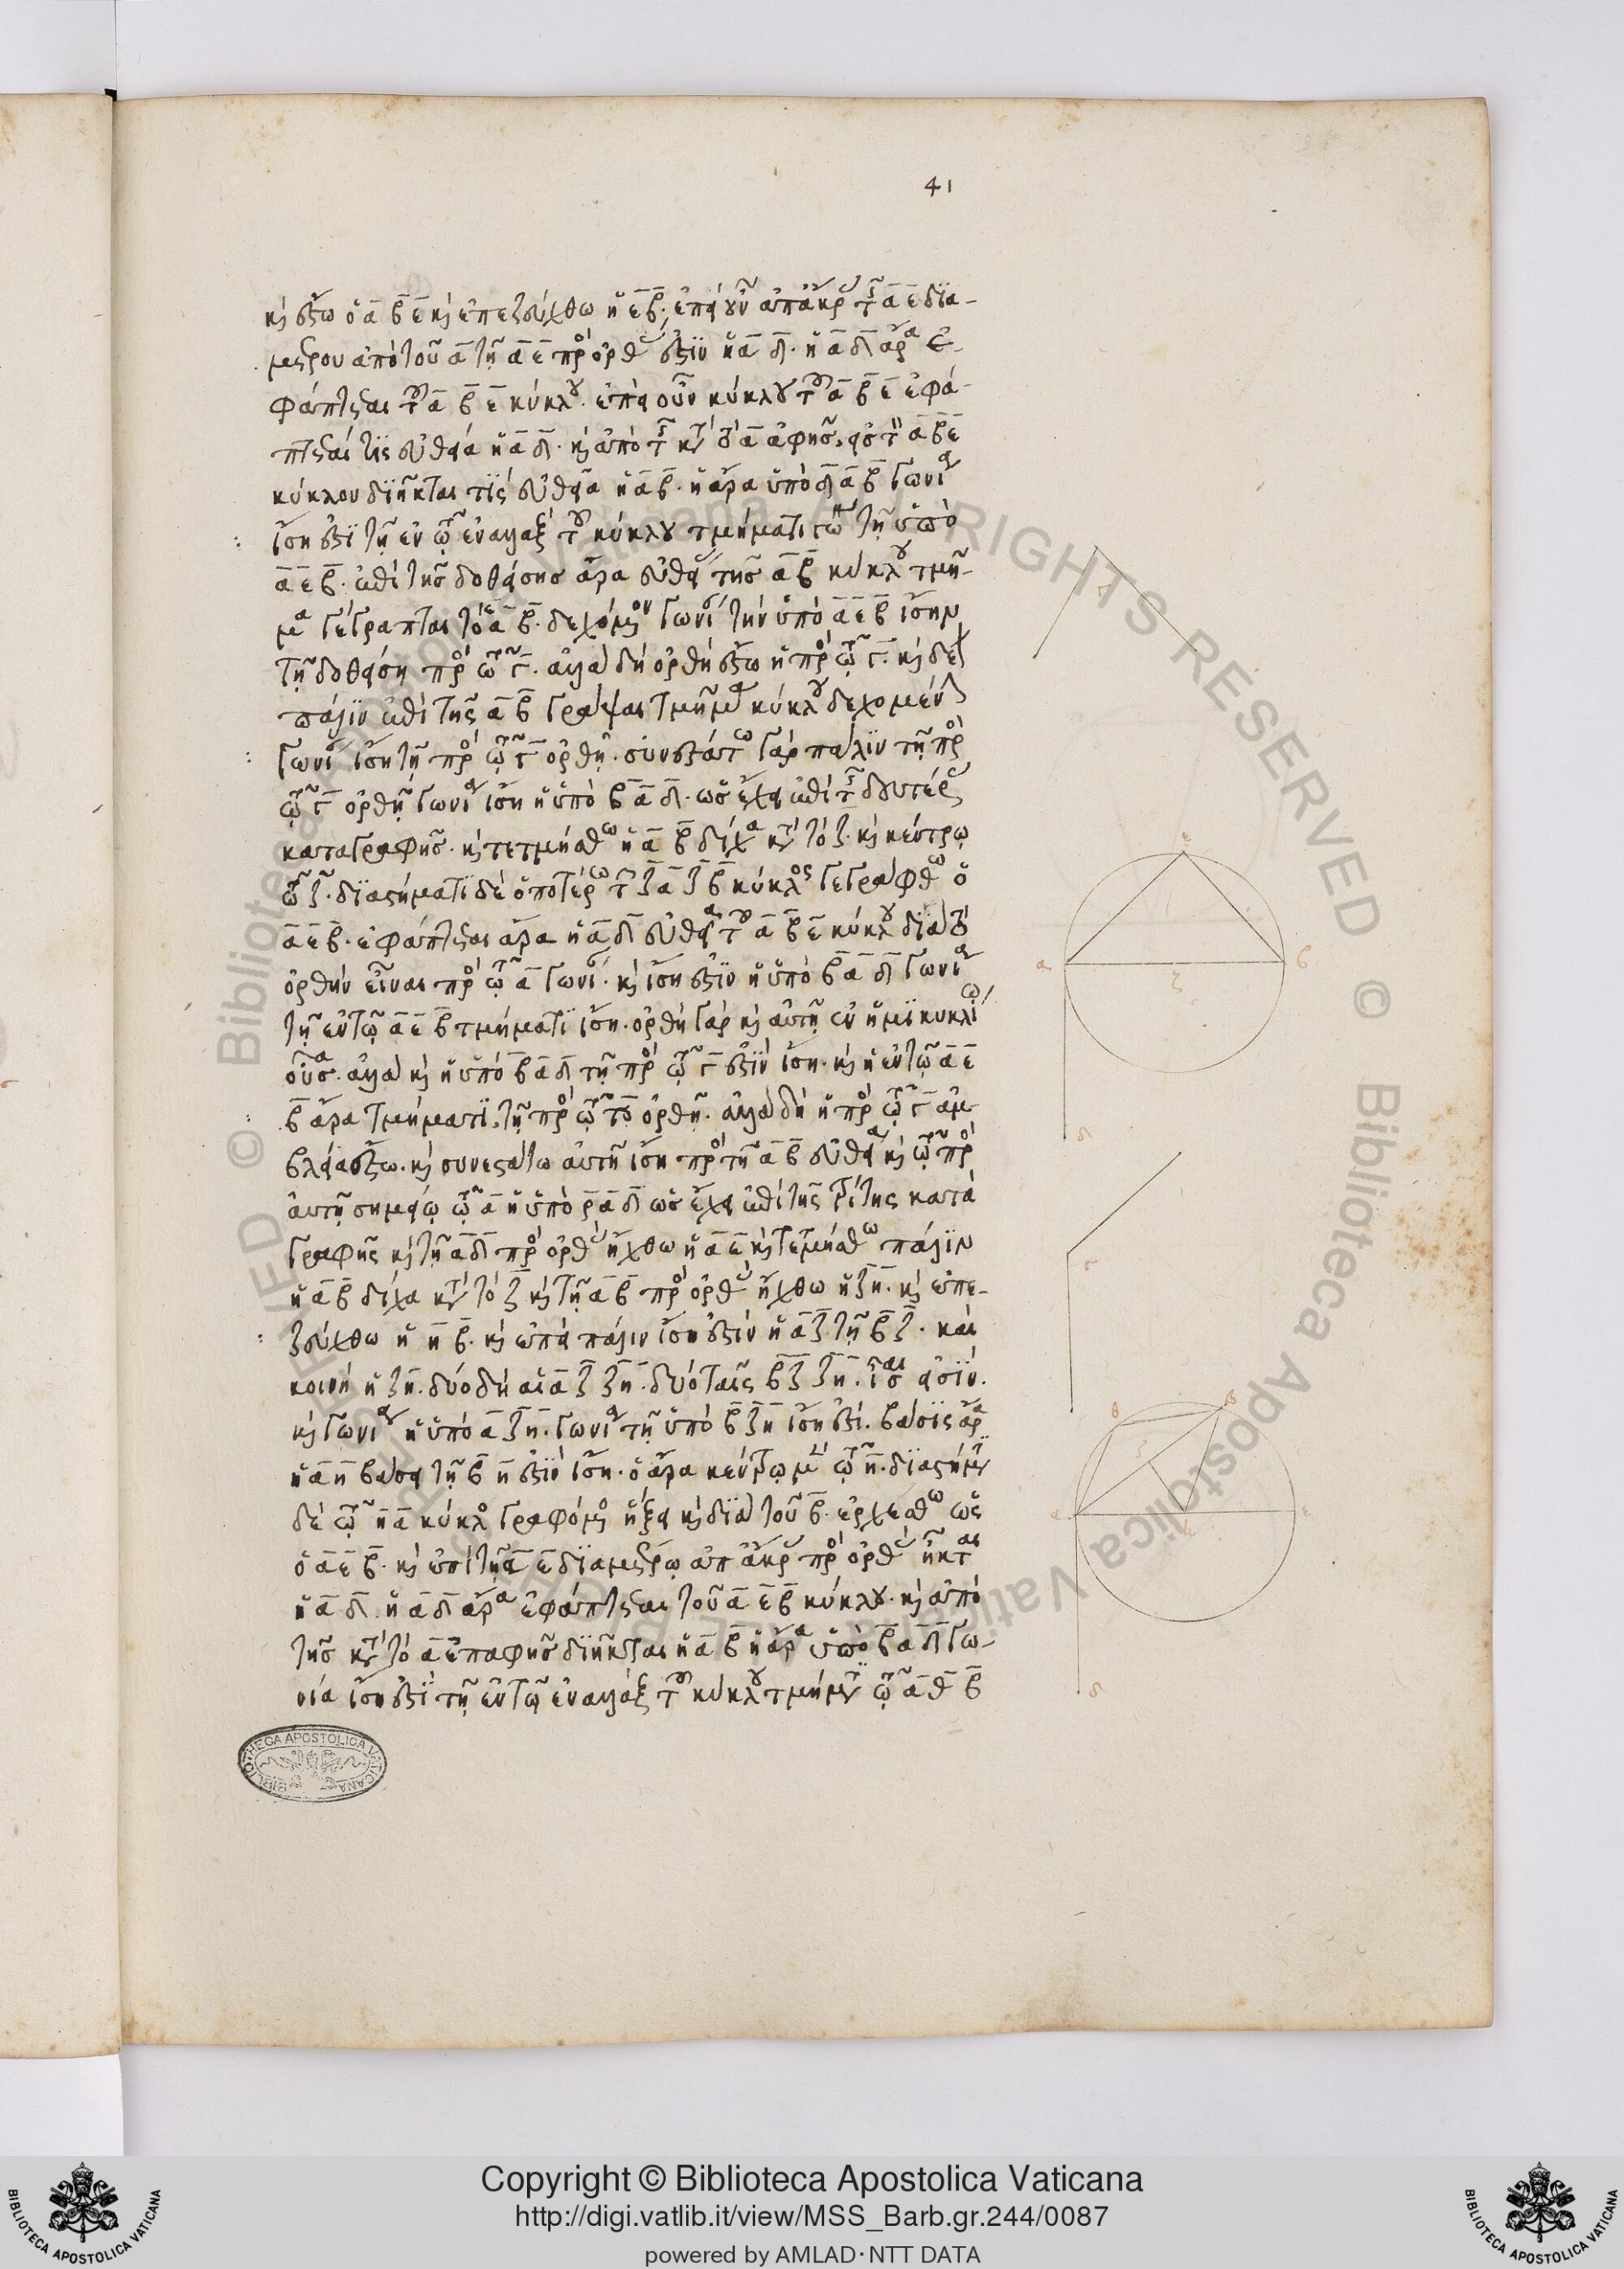 41
καὶ ἔστω ὁ α β ε καὶ ἐπεζεύχθω ἡ ε β. ἐπεὶ οὖν ἀπ' ἄκρας τῆς α ε δια-
μέτρου ἀπὸ τοῦ α τῇ α ε πρὸς ὀρθάς ἐστιν ἡ α δ. ἡ α δ ἄρα ἐ-
φάπτεται τοῦ α β ε κύκλου. ἐπεὶ οὖν κύκλου τοῦ α β ε ἐφά-
πτεταί τις εὐθεῖα ἡ α δ. καὶ ἀπὸ τῆς κατὰ τὸ α ἀφῆς εἰς τὸν α β ε
κύκλον διῆκται τὶς εὐθεῖα ἡ α β. ἡ ἄρα ὑπὸ δ α β γωνία
ἴση ἐστὶ τῇ ἐν τῷ ἐναλλὰξ τοῦ κύκλου τμήματι γωνίᾳ τῇ ὑπὸ
α ε β. ἐπὶ τῆς δοθείσης ἄρα εὐθείας τῆς α β κύκλου τμῆ-
μα γέγραπται τὸ α ε β. δεχόμενον γωνίαν τὴν ὑπὸ α ε β ἴσην
τῇ δοθείσῃ πρὸς τῷ γ. ἀλλὰ δὴ ὀρθὴ ἔστω ἡ πρὸς τῷ γ. καὶ δέον
πάλιν ἐπὶ τῆς α β γράψαι τμῆμα κύκλου δεχόμενον
γωνίαν ἴσην τῇ πρὸς τῷ γ ὀρθῇ. συνεστάτω γὰρ πάλιν τῇ πρὸς
τῷ γ ὀρθῇ γωνίᾳ ἴση ἡ ὑπὸ β α δ. ὡς ἔχει ἐπὶ τῆς δευτέρας
καταγραφῆς. καὶ τετμήσθω ἡ α β δίχα κατὰ τὸ ζ. καὶ κέντρῳ
τῷ ζ. διαστήματι δὲ ὁποτέρῳ τῶν ζ α ζ β κύκλος γεγράφθω ὁ
α ε β. ἐφάπτεται ἄρα ἡ α δ εὐθεῖα τοῦ α β ε κύκλου διὰ τὸ
ὀρθὴν εἶναι πρὸς τῷ α γωνίαν. καὶ ἴση ἐστὶν ἡ ὑπὸ β α δ γωνία
τῇ ἐν τῷ α ε β τμήματι ἴση. ὀρθὴ γὰρ καὶ αὐτὴ ἐν ἡμικυκλίῳ
οὖσα. ἀλλὰ καὶ ἡ ὑπὸ β α δ τῇ πρὸς τῷ γ ἐστιν ἴση. καὶ ἡ ἐν τῷ α ε
β ἄρα τμήματι τῇ πρὸς τῷ γ ὀρθῇ. ἀλλὰ δὴ ἡ πρὸς τῷ γ ἀμ-
βλεῖα ἔστω. καὶ συνεστάτω αὐτῇ ἴση πρὸς τῇ α β εὐθείᾳ καὶ τῷ πρὸς
αὐτῇ σημείῳ τῷ α ἡ ὑπὸ β α δ ὡς ἔχει ἐπὶ τῆς τρίτης κατα
γραφῆς καὶ τῇ α δ πρὸς ὀρθὰς ἤχθω ἡ α ε καὶ τετμήσθω πάλιν
ἡ α β δίχα κατὰ τὸ ζ καὶ τῇ α β πρὸς ὀρθὰς ἤχθω ἡ ζ η. καὶ ἐπε-
ζεύχθω ἡ η β. καὶ ἐπεὶ πάλιν ἴση ἐστὶν ἡ α ζ τῇ β ζ. καὶ
κοινὴ ἡ ζ η. δύο δὴ αἱ α ζ ζ η. δυσὶ ταῖς β ζ ζ η. ἴσαι εἰσίν.
καὶ γωνία ἡ ὑπὸ α ζ η. γωνίᾳ τῇ ὑπὸ β ζ η ἴση ἐστί. βάσις ἄρα
ἡ α η βάσει τῇ β η ἐστὶν ἴση. ὁ ἄρα κέντρῳ μὲν τῷ η. διαστήματι
δὲ τῷ η α κύκλος γραφόμενος ἥξει καὶ διὰ τοῦ β. ἐρχέσθω ὡς
ὁ α ε β. καὶ ἐπὶ τῇ α ε διαμέτρῳ ἀπ' ἄκρας πρὸς ὀρθὰς ἦκται
ἡ α δ. ἡ α δ ἄρα ἐφάπτεται τοῦ α ε β κύκλου. καὶ ἀπὸ
τῆς κατὰ τὸ α ἐπαφῆς διῆκται ἡ α β ἡ ἄρα ὑπὸ β α δ γω-
νία ἴση ἐστὶ τῇ ἐν τῷ ἐναλλὰξ τοῦ κύκλου τμήματι τῷ α θ β
γ
ε
α
β
ζ
δ
γ
θ
β
ζ
α
η
ε
δ
BIBLIOTHECA APOSTOLICA VATICANA
© Biblioteca Apostolica Vaticana ALL RIGHTS RESERVED
Copyright © Biblioteca Apostolica Vaticana
http://digi.vatlib.it/view/MSS_Barb.gr.244/0087
powered by AMLAD·NTT DATA
BIBLIOTECA APOSTOLICA VATICANA
BIBLIOTECA APOSTOLICA VATICANA